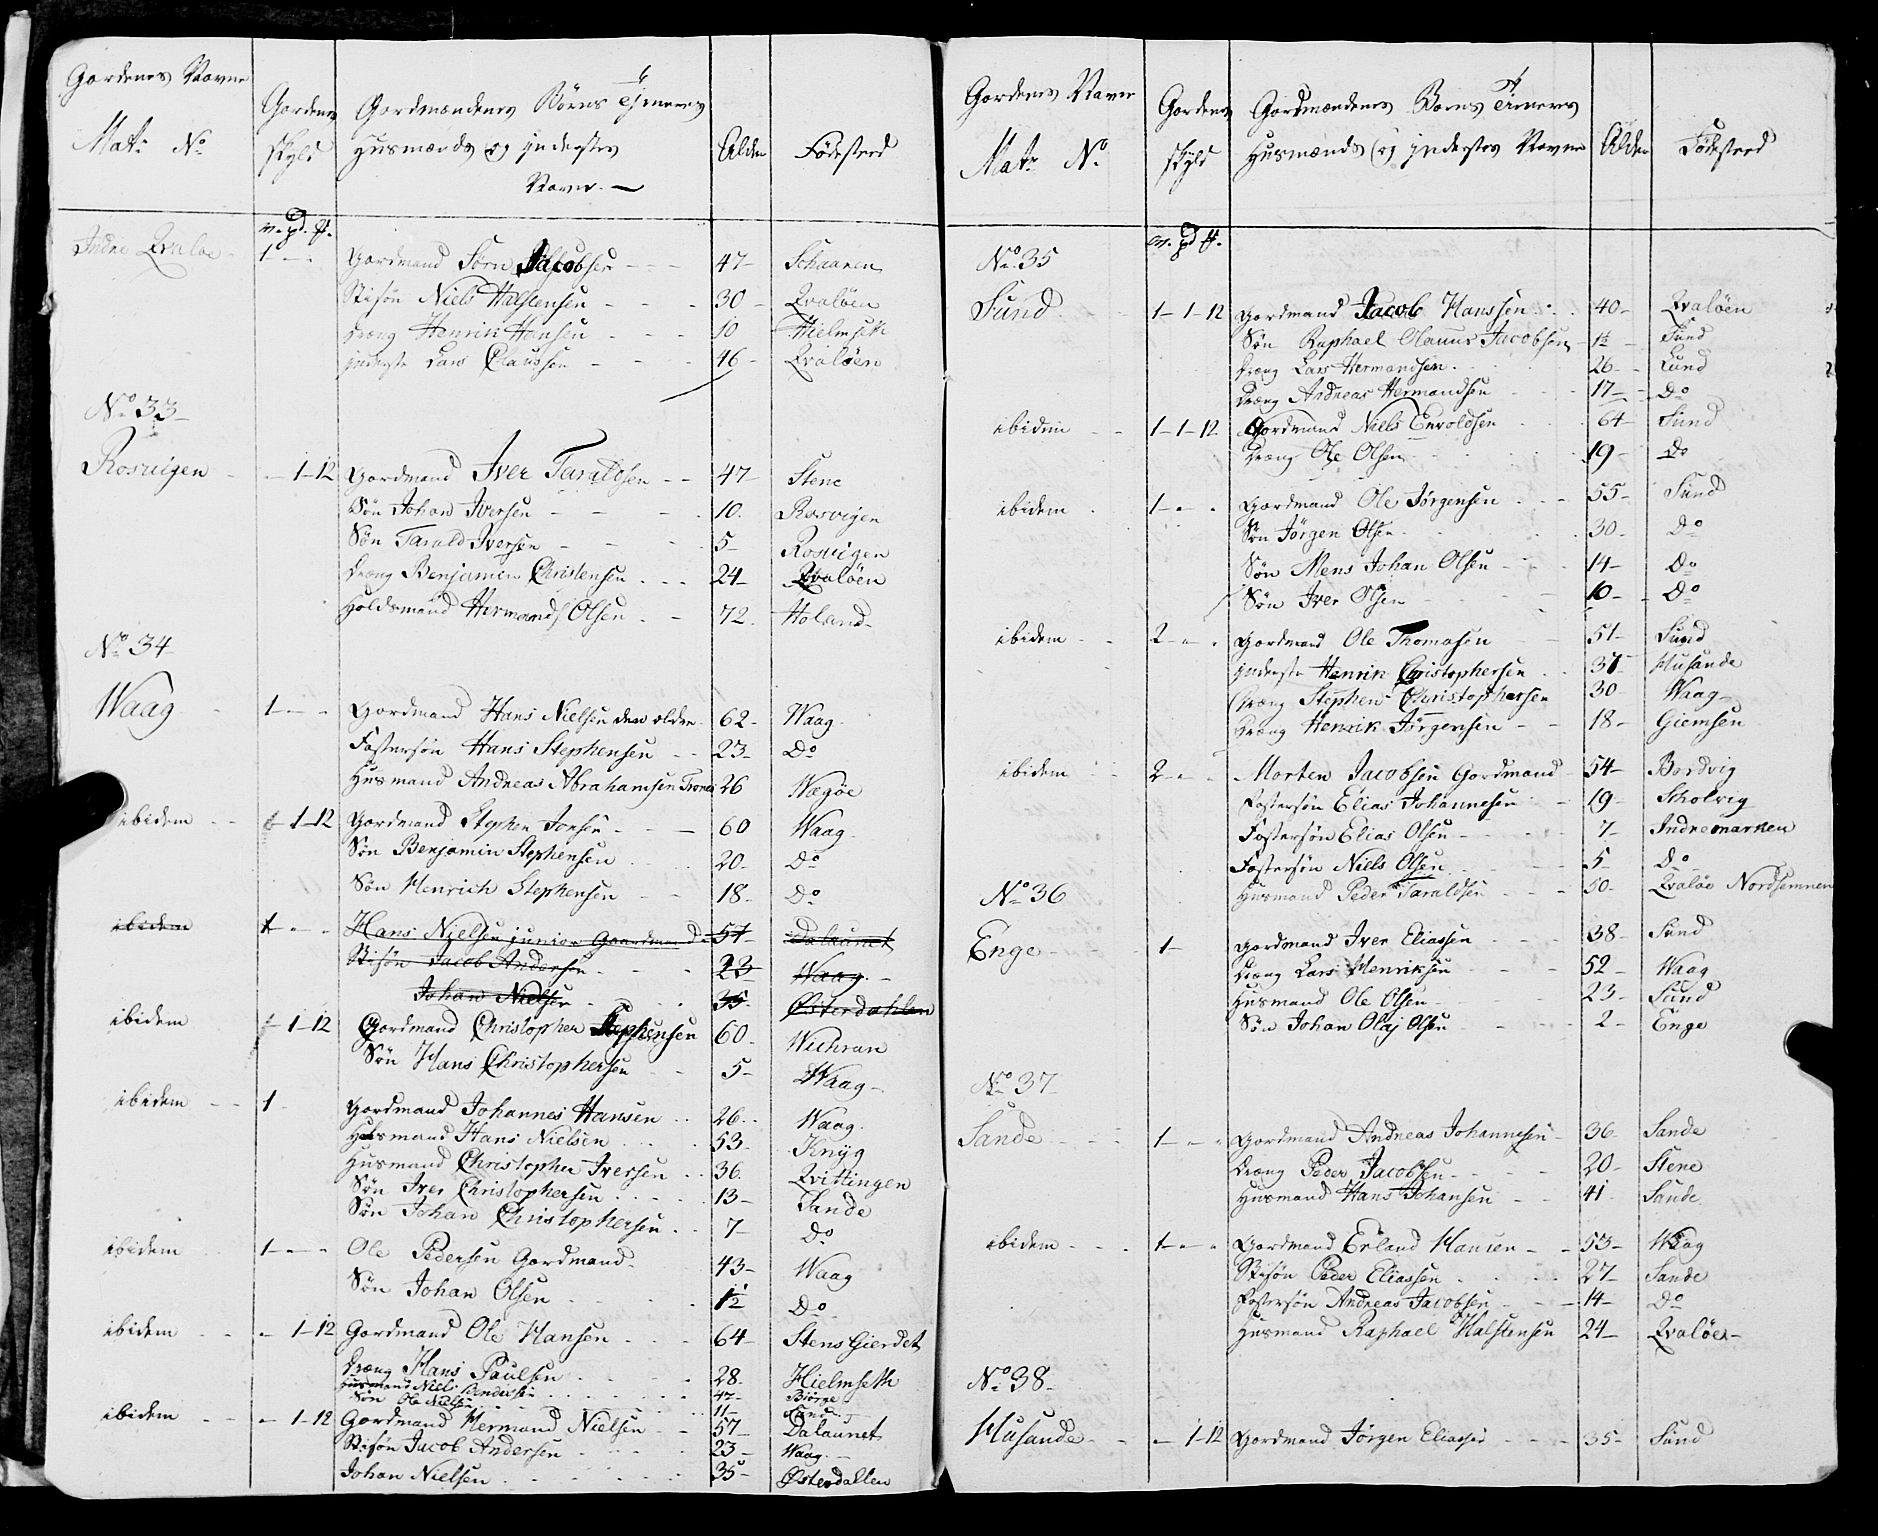 Gordenes Navne
Mat: No
Gordens skyld
Gordmændenes Børns Tieneres
Husmænds og inderster
Navne. —
Alder
Fødested
v. pd. #.
Indre Qvaløe 1 - - Gordmand Sørn Jacobsen 47 Schaanen
Stifsøn Niels Halstensen 30 Qvaløen
Dræng Henrik Hansen 10 Hielmseth
inderste Lars Claussen 46 Qvaløen
No 33
Rosvigen - 1-12 Gordmand Iver Taraldsen 47 Stene
Søn Johan Iversen 10. Rosvigen
Søn Tarald Iversen 5 Rosvigen
Dræng Benjamin Christensen 24 Qvaløen
Holdsmand Hermand Olsen 72. Holand
No 34
Waag 1 - - Gordmand Hans Nielsen den older 62 Waag
Fostersøn Hans Stephensen 23 Do
Husmand Andreas Abrahamsen 26 Wægøe
ibidem 1-12 Gordmand Stephen Jonsen 60 Waag
Søn Benjamin Stephensen 20 Do
Søn Henrich Stephensen 18 Do
ibidem 1 - - Hans Nielsen junior Gaardmand 51 Dalaunet
Stifsøn Jacob Andersen 23 Waag
Johan Nielsen 35 Østerdahlen
ibidem 1-12 Gordmand Christopher Stephensen 60 Wichran
Søn Hans Christophersen 5 Waag
ibidem 1 Gordmand Johannes Hansen 26 Waag
Husmand Hans Nielsen 53 Knyg
Husmand Christopher Iversen 36 Qvittingen
Søn Iver Christophersen 13 Sande
Søn Johan Christophersen 7 Do
ibidem 1 - - Ole Pedersen Gordmand 43 Waag
Søn Johan Olsen 1½ Do
ibidem - 1-12 Gordmand Ole Hansen 64 Stens Gierdet
Dræng Hans Paulsen 28 Hielmseth
Husmand Niels Andersen 47 Biörge
Søn Ole Nielsen 11 Sund
ibidem - 1-12 Gordmand Hermand Nielsen 57 Dalaunet
Stifsøn Jacob Andersen 23 Waag
Johan Nielsen 35 Østerdallen
Gordenes Navne
Mat: No
Gordens skyld
Gordmændenes Børns Tieneres
Husmænds og inderster Navne
Alder
Fødested
v. pd #.
No 35
Sund 1-1-12 Gordmand Jacob Hanssen 40 Qvaløen
Søn Raphael Olaüus Jacobsen 1½ Sund
Dræng Lars Hermandsen 26 Lund
Dræng Andreas Hermandsen 17 Do
ibidem 1-1-12 Gordmand Niels Envoldsen 64 Sund
Dræng Ole Olsen 19 Do
ibidem 1 - - Gordmand Ole Jørgensen 55 Sund
Søn Jørgen Olsen 30 Do
Søn Mens Johan Olsen 14 Do
Søn Iver Olsen 10 Do
ibidem 2 - - Gordmand Ole Thomasen 51 Sund
inderste Henrik Christophersen 37 Husande
Dræng Stephen Christophersen 30 Waag
Dræng Henrik Jørgensen 18 Giemsen
ibidem 2 - - Morten Jacobsen Gordmand 54 Bordvig
Fostersøn Elias Johannesen 19 Scholvig
Fostersøn Elias Olsen 7 Indremarken
Fostersøn Niels Olsen 5 Do
Husmand Peder Taraldsen 50 Qvaløe Nordsemnen
No 36
Enge 1 Gordmand Iver Eliassen 38 Sund
Dræng Lars Henriksen 52 Waag
Husmand Ole Olsen 23 Sund
Søn Johan Olaj Olsen 2 Enge
No 37
Sande 1 - - Gordmand Andreas Johannesen 36 Sande
Dræng Peder Jacobsen 20 Stene
Husmand Hans Johansen 41 Sande
ibidem 1 - - Gordmand Erland Hansen 53 Waag
Stifsøn Peder Eliassen 27 Sande
Fostersøn Andreas Jacobsen 14 Do
Husmand Raphael Halstensen 24 Qvaløe
No 38
Husande - 1-12 Gordmand Jörgen Eliassen 35 Sund